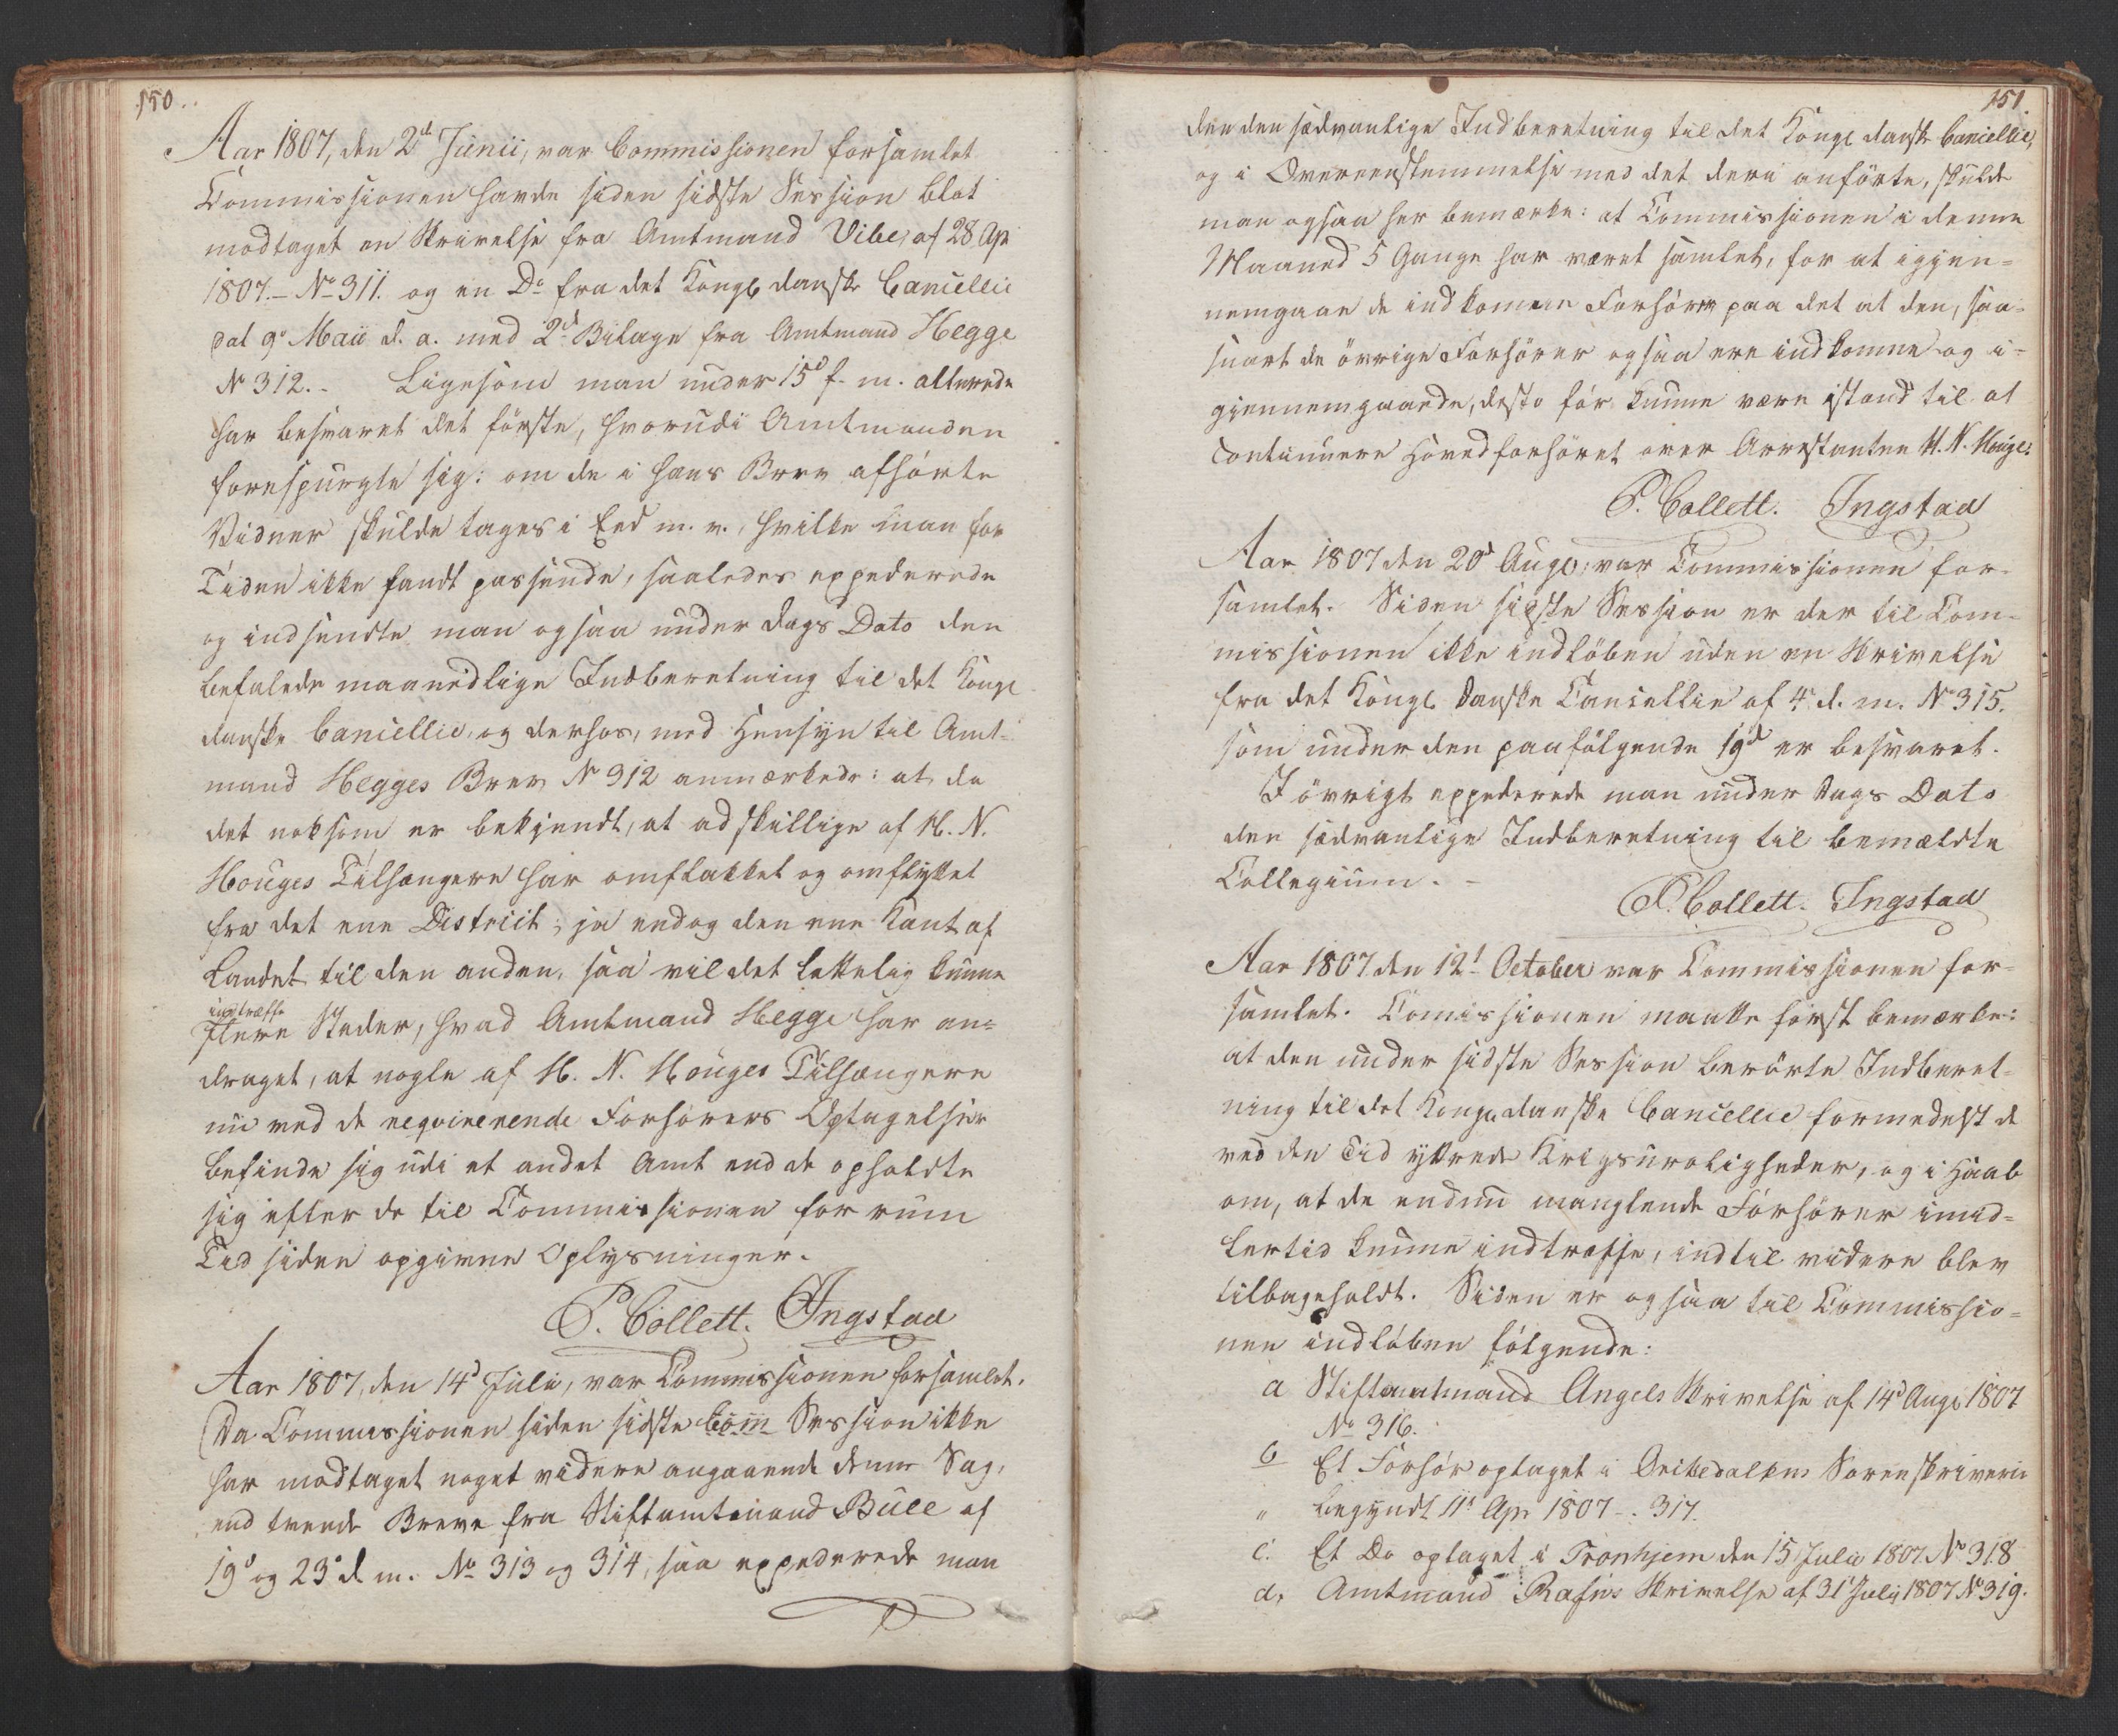 150.
Aar 1807, den 2d Junii, var Commissionen forsamlet
Commissionen havde siden sidste Session blot
modtaget en Skrivelse fra Amtmand Vibe, af 28 Ap
1807. – No 311. og en Do fra det Kongl danske Cancellie
dat 9d Maii d. a. med 2d Bilage fra Amtmand Hegge
No 312. – Ligesom man under 15d f. m. allerede
har besvaret det første, hvorudi Amtmanden
forespurgte sig: om de i hans Brev afhørte
Vidner skulde tages i Eed m. v., hvilke man for
Tiden ikke fandt passende, saaledes expederede
og indsendte man ogsaa under Dags Dato den
befalede maanedlige Indberetning til det Kongl
danske Cancellie, og derhos, med Hensyn til Amt-
mand Hegges Brev No 312 anmærkede: at da
det noksom er bekjendt, at adskillige af H. N.
Houges Tilhængere har omflakket og omflyttet
fra det ene District, ja endog den ene Kant af
Landet til den anden, saa vil det lettelig kunne
indtræffe
flere Steder, hvad Amtmand Hegge har an-
draget, at nogle af H. N. Houges Tilhængere
nu ved de reqvirerende Forhørers Optagelser
befinde sig udi et andet Amt end de opholdte
sig efter de til Commissionen for rum
Tid siden opgivne Oplysninger.
P. Collett. Ingstad
Aar 1807, den 14d Julii, var Commissionen forsamlet.
Da Commissionen siden sidste Com Session ikke
har modtaget noget videre angaaende denne Sag,
end tvende Breve fra Stiftamtmand Bull af
19d og 23d d. m. No 313 og 314, saa expederede man
151.
den den sædvanlige Indberetning til det Kongl danske Cancellie,
og i Overeenstemmelse med det deri anførte, skulde
man ogsaa her bemærke: at Commissionen i denne
Maaned 5 Gange har været samlet, for at igjen-
nemgaae de indkomne Forhører paa det at den, saa-
snart de øvrige Forhører ogsaa ere indkomne og i-
giennemgaaede, desto før kunne være istand til at
continuere Hovedforhøret over Arrestanten H. N. Houge.
P. Collett. Ingstad
Aar 1807 den 20d Aug. var Commissionen for-
samlet. Siden sidste Session er der til Com-
missionen ikke indløben uden en Skrivelse
fra det Kongl Danske Cancellie af 4 d. m. No 315.
som under den paafølgende 19d er besvaret.
I øvrigt expederede man under Dags Dato
den sædvanlige Indberetning til bemældte
Collegium. –
P. Collett. Ingstad
Aar 1807 den 12t October var Commissionen for-
samlet. Comissionen maatte først bemærke:
at den under sidste Session berørte Indberet-
ning til det Kongl danske Cancellie formedelst de
ved den Tid yttrede Krigsuroligheder, og i Haab
om, at de endnu manglende Forhører imid-
lertid kunne indtræffe, indtil videre blev
tilbageholdt. Siden er ogsaa til Commissio-
nen indløben følgende:
a Stiftamtmand Angels Skrivelse af 14d Aug. 1807
No 316.
b Et Forhør optaget i Orkedalens Sorenskriverie
" begyndt 11t Apr 1807 – . 317.
c. Et Do optaget i Tronhjem den 15 Julii 1807. No 318
d, Amtmand Rafns Skrivelse af 31 Julij 1807 No 319.